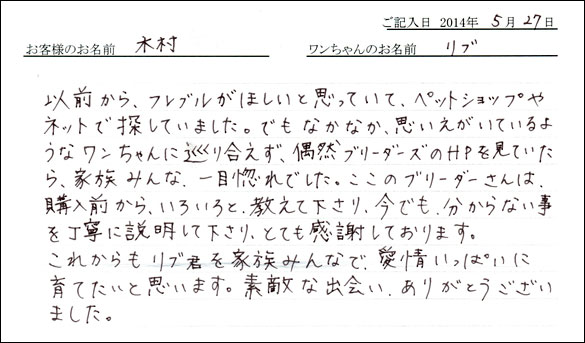 ご記入日 2014年 5月27日
お客様のお名前 木村 ワンちゃんのお名前 リブ
以前から、フレブルがほしいと思っていて、ペットショップや
ネットで探していました。でもなかなか、思いえがいているよ
うなワンちゃんに巡り合えず、偶然ブリーダーズのHPを見ていた
ら、家族みんな、一目惚れでした。ここのブリーダーさんは、
購入前から、いろいろと、教えて下さり、今でも、分からない事
を丁寧に説明して下さり、とても感謝しております。
これからもリブ君を家族みんなで、愛情いっぱいに
育てたいと思います。素敵な出会い、ありがとうござい
ました。